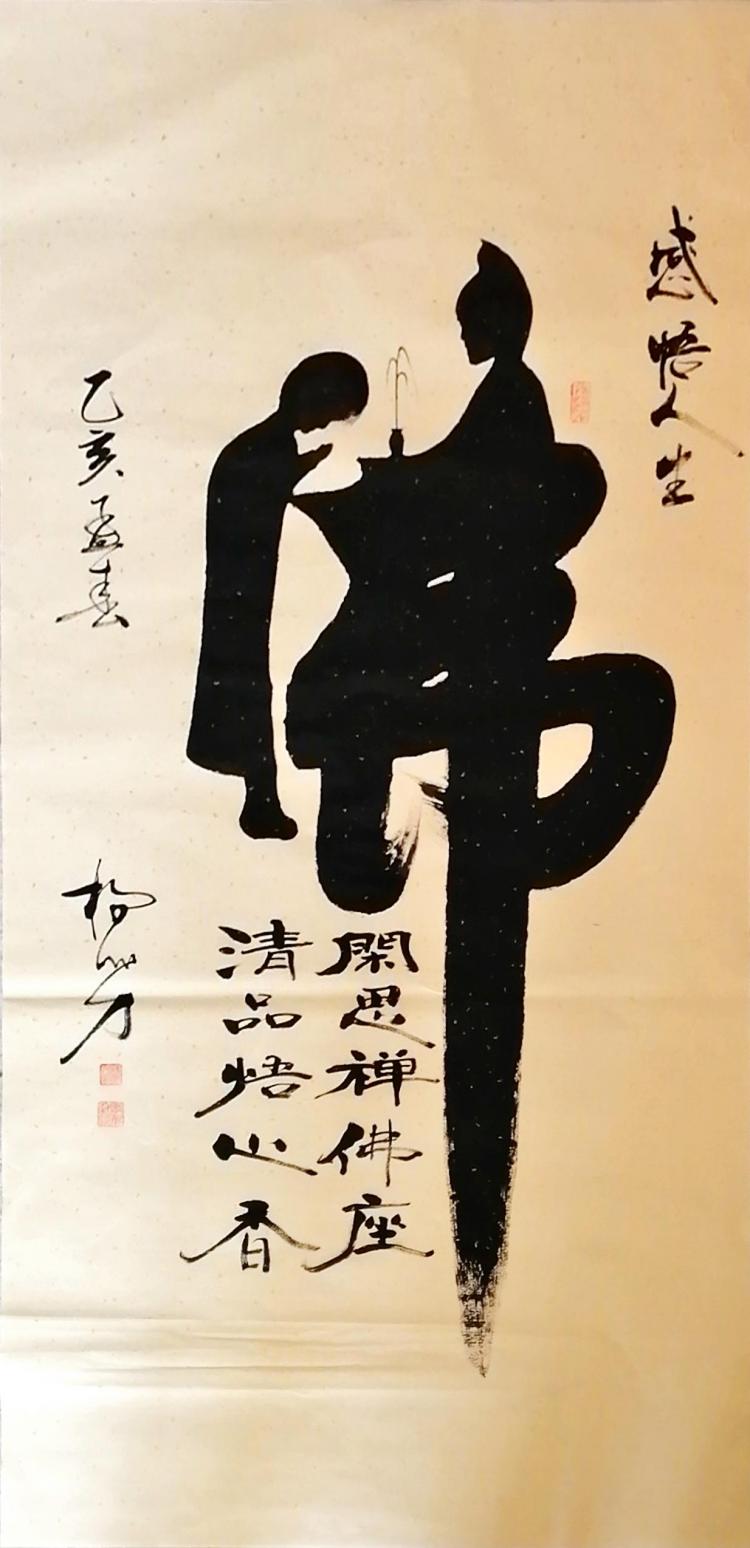 感悟人生
佛
閑思禅佛座
清品悟心香
乙亥孟春